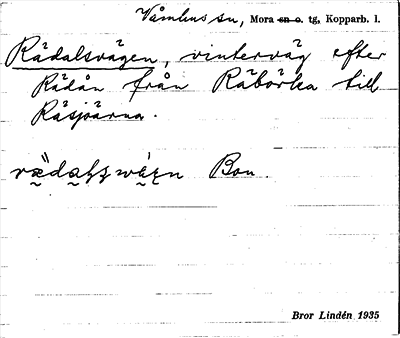 Våmhus sn, Mora sn o. tg, Kopparb. l.
Rädalsvägen, vinterväg efter
Rädån från Räbörka till
Räsjöarna.
Bon.
Bror Lindén 1935